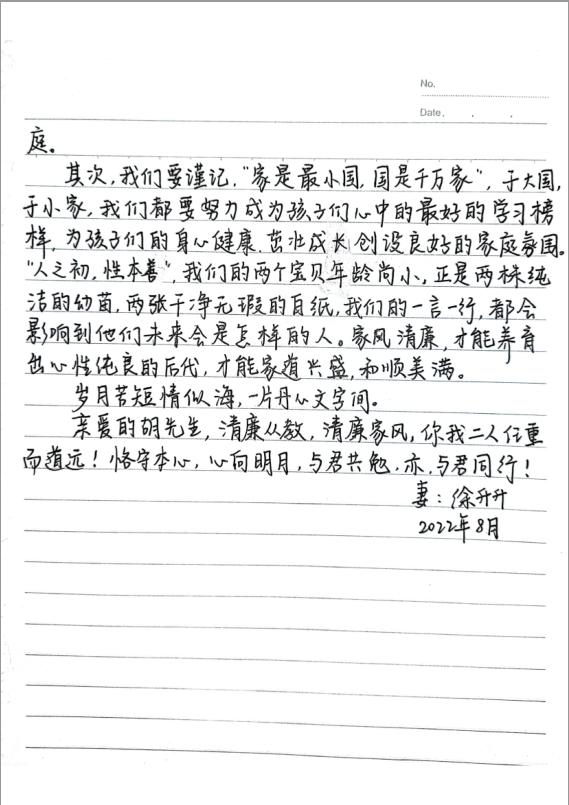 No.
Date.
庭。
其次,我们要谨记,“家是最小国,国是千万家”,于大国,
于小家,我们都要努力成为孩子们心中的最好的学习榜
样,为孩子们的身心健康、茁壮成长创设良好的家庭氛围。
“人之初,性本善”,我们的两个宝贝年龄尚小,正是两株纯
洁的幼苗,两张干净无瑕的白纸,我们的一言一行,都会
影响到他们未来会是怎样的人。家风清廉,才能养育
出心性纯良的后代,才能家道兴盛,和顺美满。
岁月苦短情似海,一片丹心文字间。
亲爱的胡先生,清廉从教,清廉家风,你我二人任重
而道远!恪守本心,心向明月,与君共勉,亦与君同行!
妻:徐升升
2022年8月